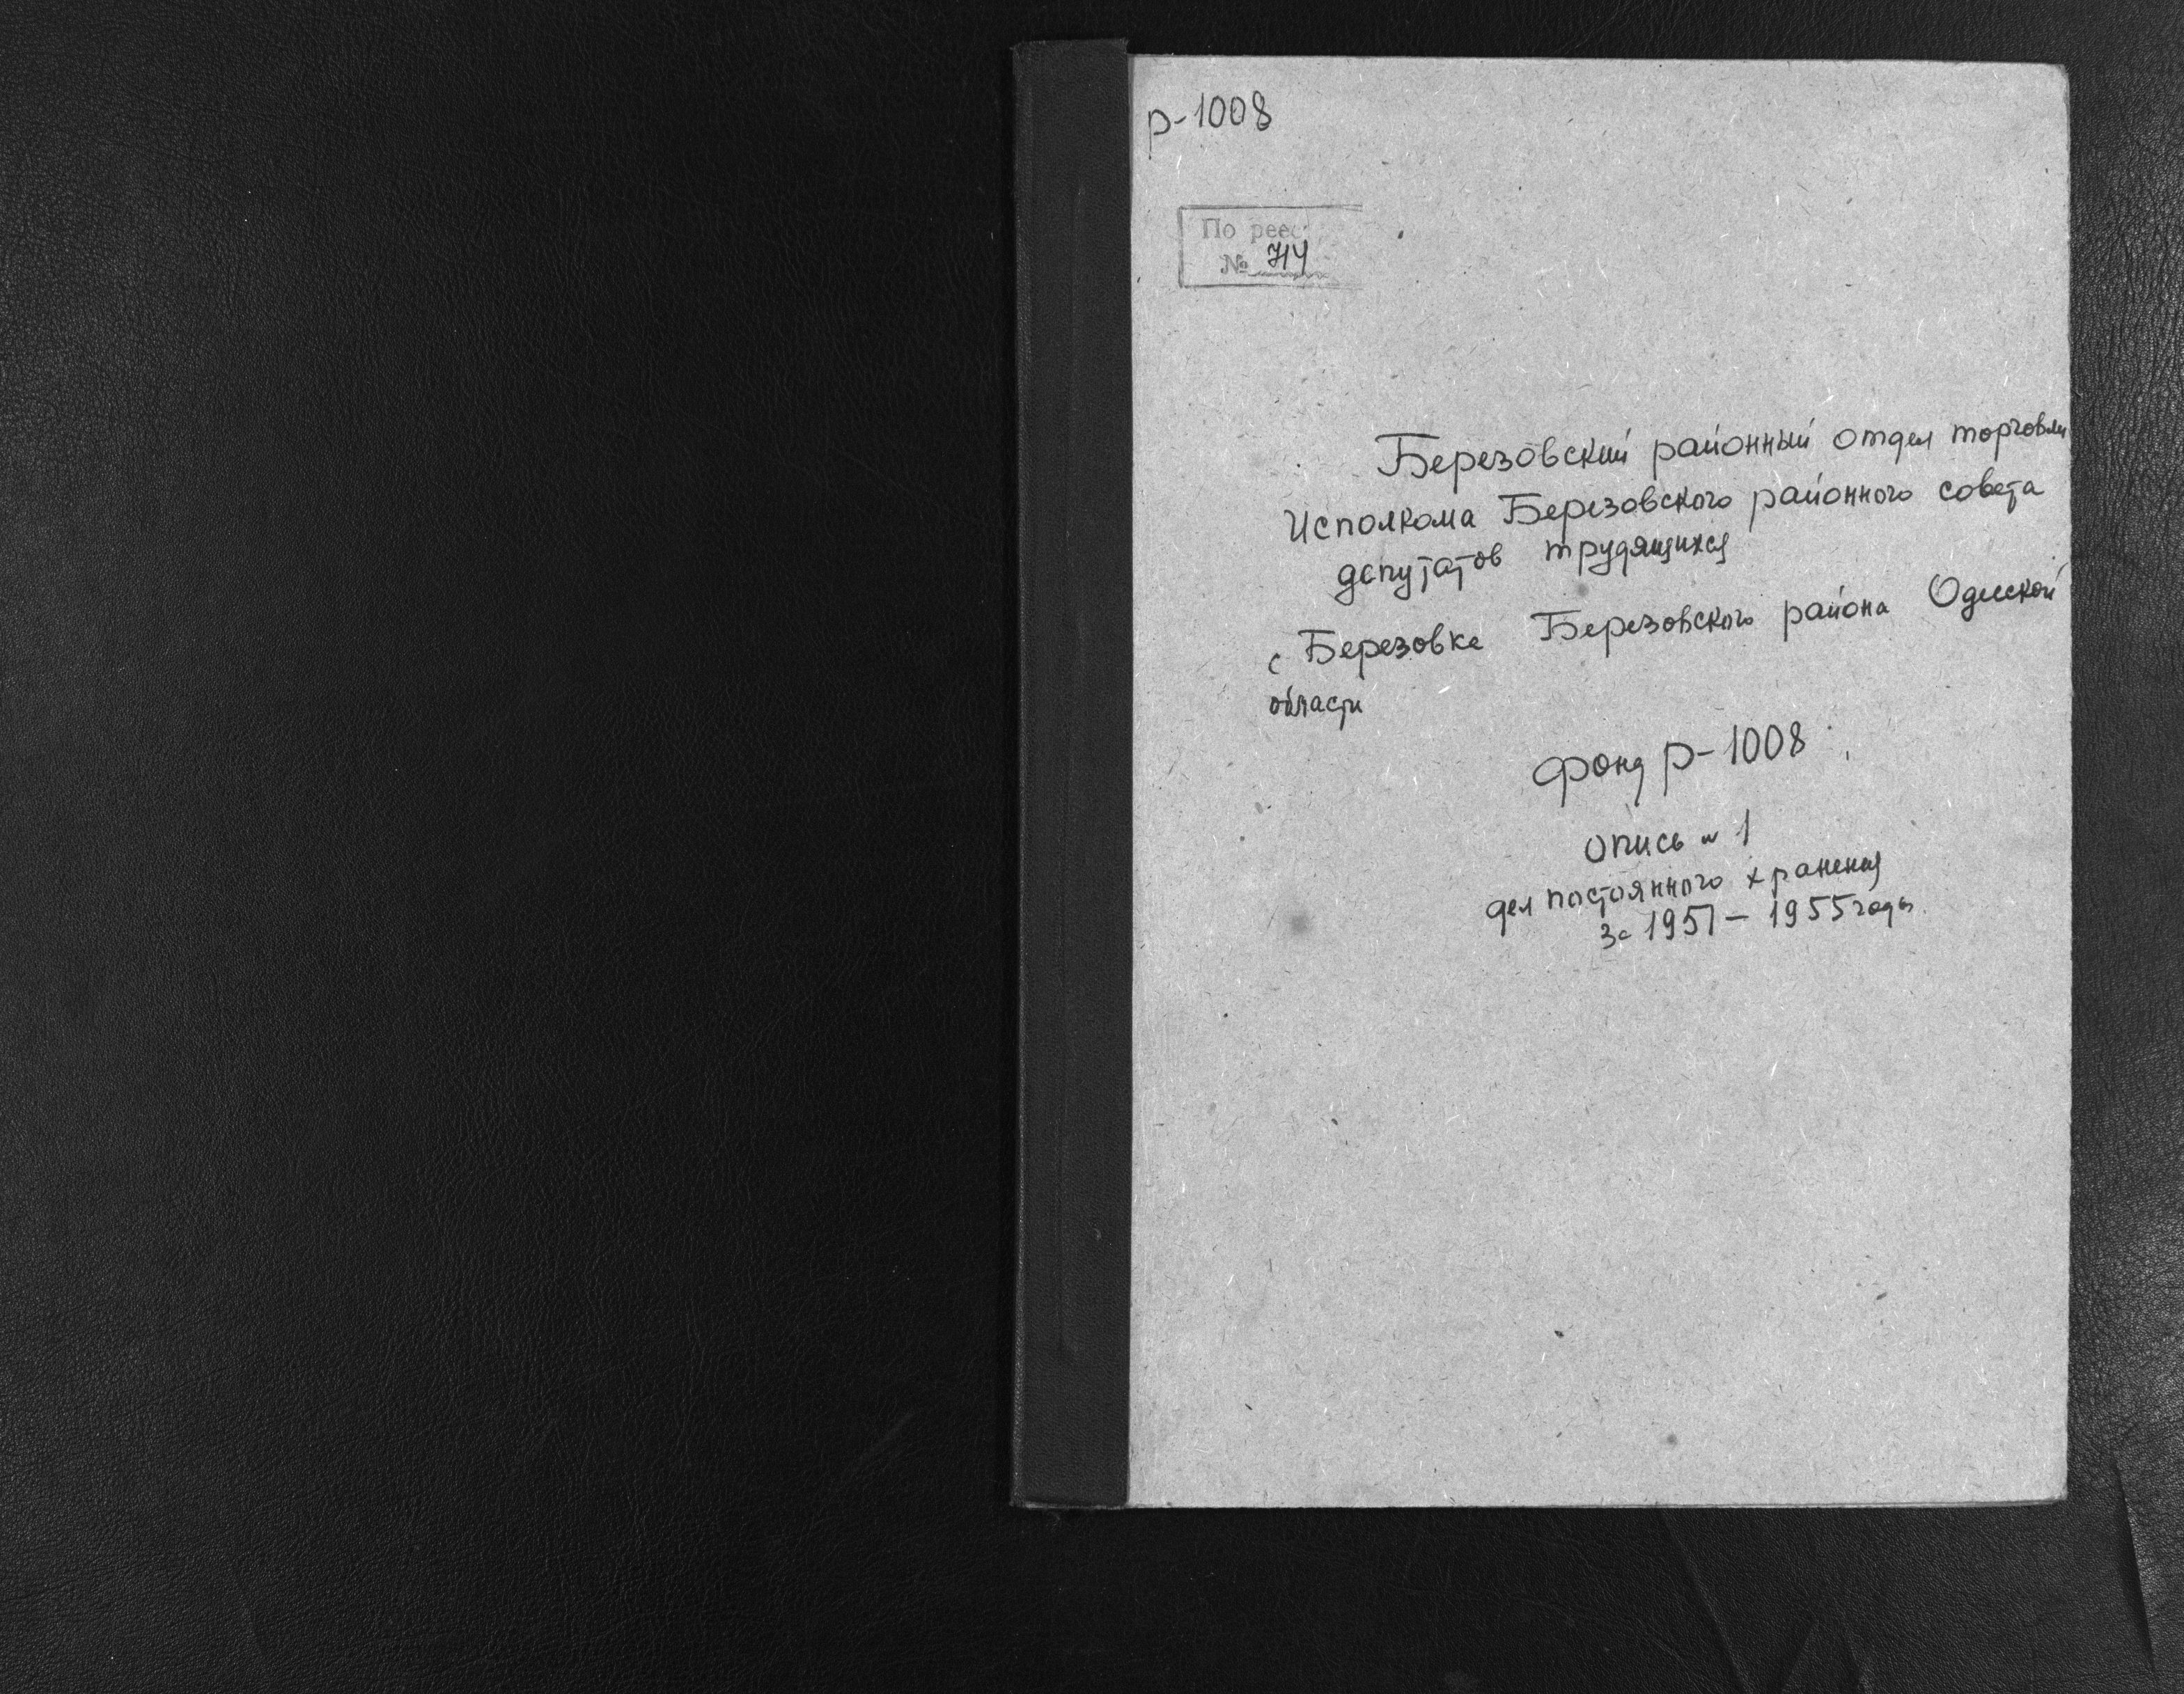 р-1008
По реес
№ 714
Березовский районный отдел торговли
Исполкома Березовского районного совета
депутатов трудящихся
с Березовке Березовского района Одесской
области
Фонд р-1008
Опись № 1
дел постоянного хранения
За 1951 - 1955 годы